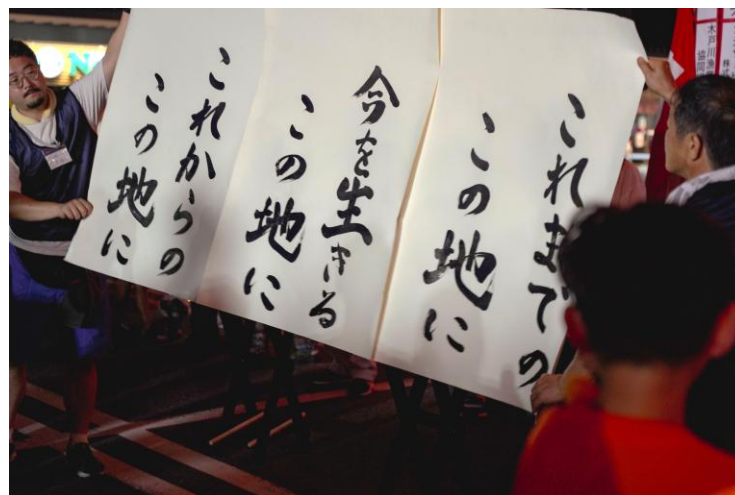 これまでの
この地に
今を生きる
この地に
これからの
この地に
木戸川漁
協同